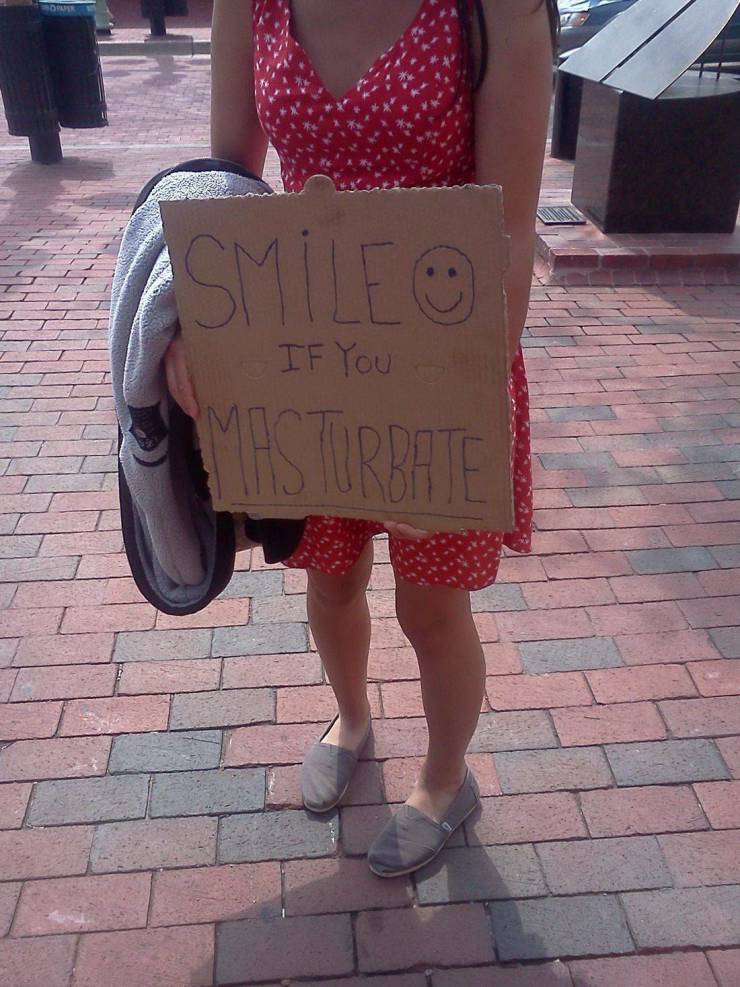 PAPER
SMiLE
IF YOU
MASTURBATE